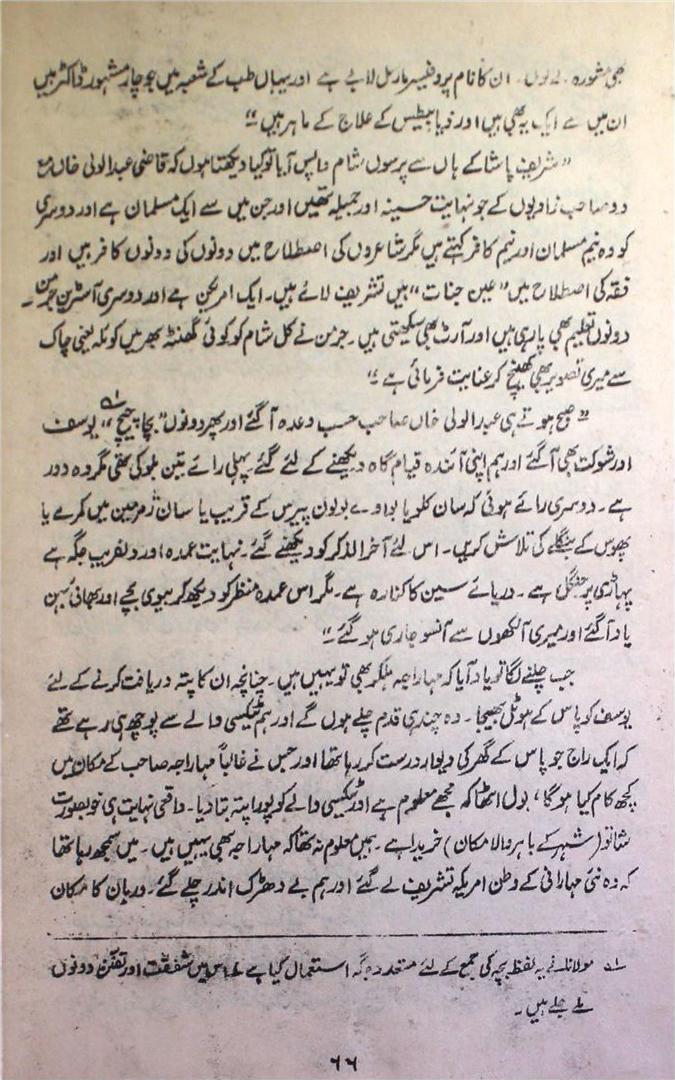 بھی مشورہ لے لوں۔ ان کا نام پروفیسر مارسل لابے ہے اور یہاں طب کے شعبہ میں جو چار مشہور ڈاکٹر ہیں
ان میں سے ایک یہ بھی ہیں اور ذیابیطیس کے علاج کے ماہر ہیں"
"شریف پاشا کے ہاں سے پرسوں شام واپس آیا تو کیا دیکھتا ہوں کہ قاضی عبدالولی خاں مع
دو صاحب زادیوں کے جو نہایت حسینہ اور جمیلہ تھیں اور جن میں سے ایک مسلمان ہے اور دوسری
کو وہ نیم مسلمان اور نیم کافر کہتے ہیں مگر شاعروں کی اصطلاح میں دونوں کی دونوں کافر ہیں اور
فقہ کی اصطلاح میں "عین جنات" ہیں تشریف لائے ہیں۔ ایک امریکن ہے اور دوسری آسٹرین جرمن۔
دونوں تعلیم بھی پا رہی ہیں اور آرٹ بھی سیکھتی ہیں۔ جرمن نے کل شام کو کوئی گھنٹہ بھر میں کوئلہ یعنی چاک
سے میری تصویر بھی کھینچ کر عنایت فرمائی ہے"
"صبح ہوتے ہی عبدالولی خاں صاحب حسب وعدہ آگئے اور پھر دونوں "بچاپیچ" ؎۱ یوسف
اور شوکت بھی آگئے اور ہم اپنی آئندہ قیام گاہ دیکھنے کے لئے گئے پہلی رائے تین بلو کی تھی مگر وہ دور
ہے۔ دوسری رائے ہوئی کہ سان کلو یا بوا دے بولون پیرس کے قریب یا سان ژرمین میں کمرے یا
پھوس کے بنگلے کی تلاش کریں۔ اس لئے آخر الذکر کو دیکھنے گئے۔ نہایت عمدہ اور دلفریب جگہ ہے
پہاڑی پر جنگل ہے۔ دریائے سین کا کنارہ ہے۔ مگر اس عمدہ منظر کو دیکھ کر بیوی بچے اور بھائی بہن
یاد آگئے اور میری آنکھوں سے آنسو جاری ہو گئے"
جب چلنے لگا تو یاد آیا کہ مہاراجہ ہلکر بھی تو یہیں ہیں۔ چنانچہ ان کا پتہ دریافت کرنے کے لئے
یوسف کو پاس کے ہوٹل بھیجا۔ وہ چند ہی قدم چلے ہوں گے اور ہم ٹیکسی والے سے پوچھ ہی رہے تھے
کہ ایک راج جو پاس کے گھر کی دیوار درست کر رہا تھا اور جس نے غالباً مہاراجہ صاحب کے مکان میں
کچھ کام کیا ہوگا، بول اٹھا کہ مجھے معلوم ہے اور ٹیکسی والے کو پورا پتہ بتا دیا۔ واقعی نہایت ہی خوبصورت
شاتو (شہر کے باہر والا مکان) خریدا ہے۔ ہمیں معلوم نہ تھا کہ مہاراجہ بھی یہیں ہیں۔ میں سمجھ رہا تھا
کہ وہ نئی مہارانی کے وطن امریکہ تشریف لے گئے اور ہم بے دھڑک اندر چلے گئے۔ دربان کا مکان
؎۱ مولانا نے یہ لفظ بچہ کی جمع کے لئے متعدد جگہ استعمال کیا ہے اس میں شفقت اور تفنّن دونوں
ملے جلے ہیں۔
۶۶